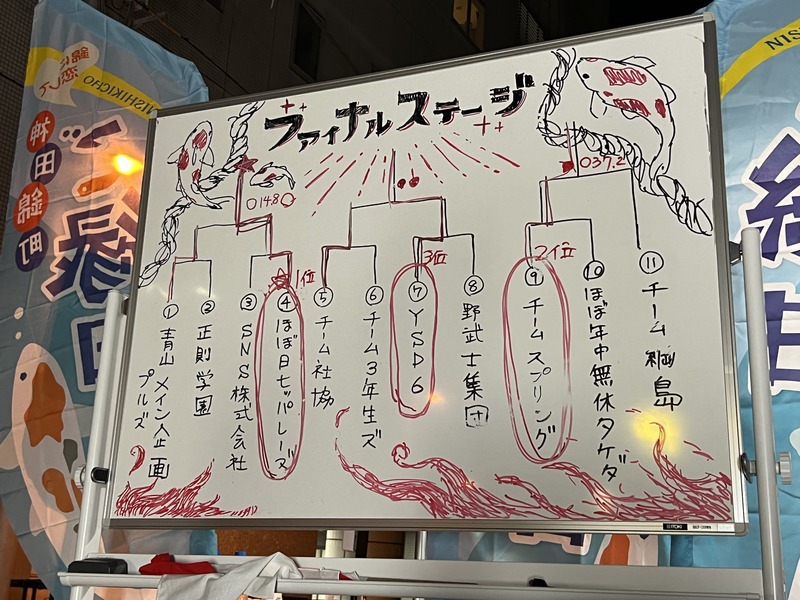 ファイナルステージ
0148
037.2
1位
3位
2位
① 青山メイン企画
プルズ
② 正則学園
③ SNS株式会社
④ ほぼ日セッパレーズ
⑤ チーム社協
⑥ チーム3年生ズ
⑦ YSD6
⑧ 野武士集団
⑨ チームスプリング
⑩ ほぼ年中無休タケダ
⑪ チーム綱島
NISHIKICHO
神田錦町
NIS